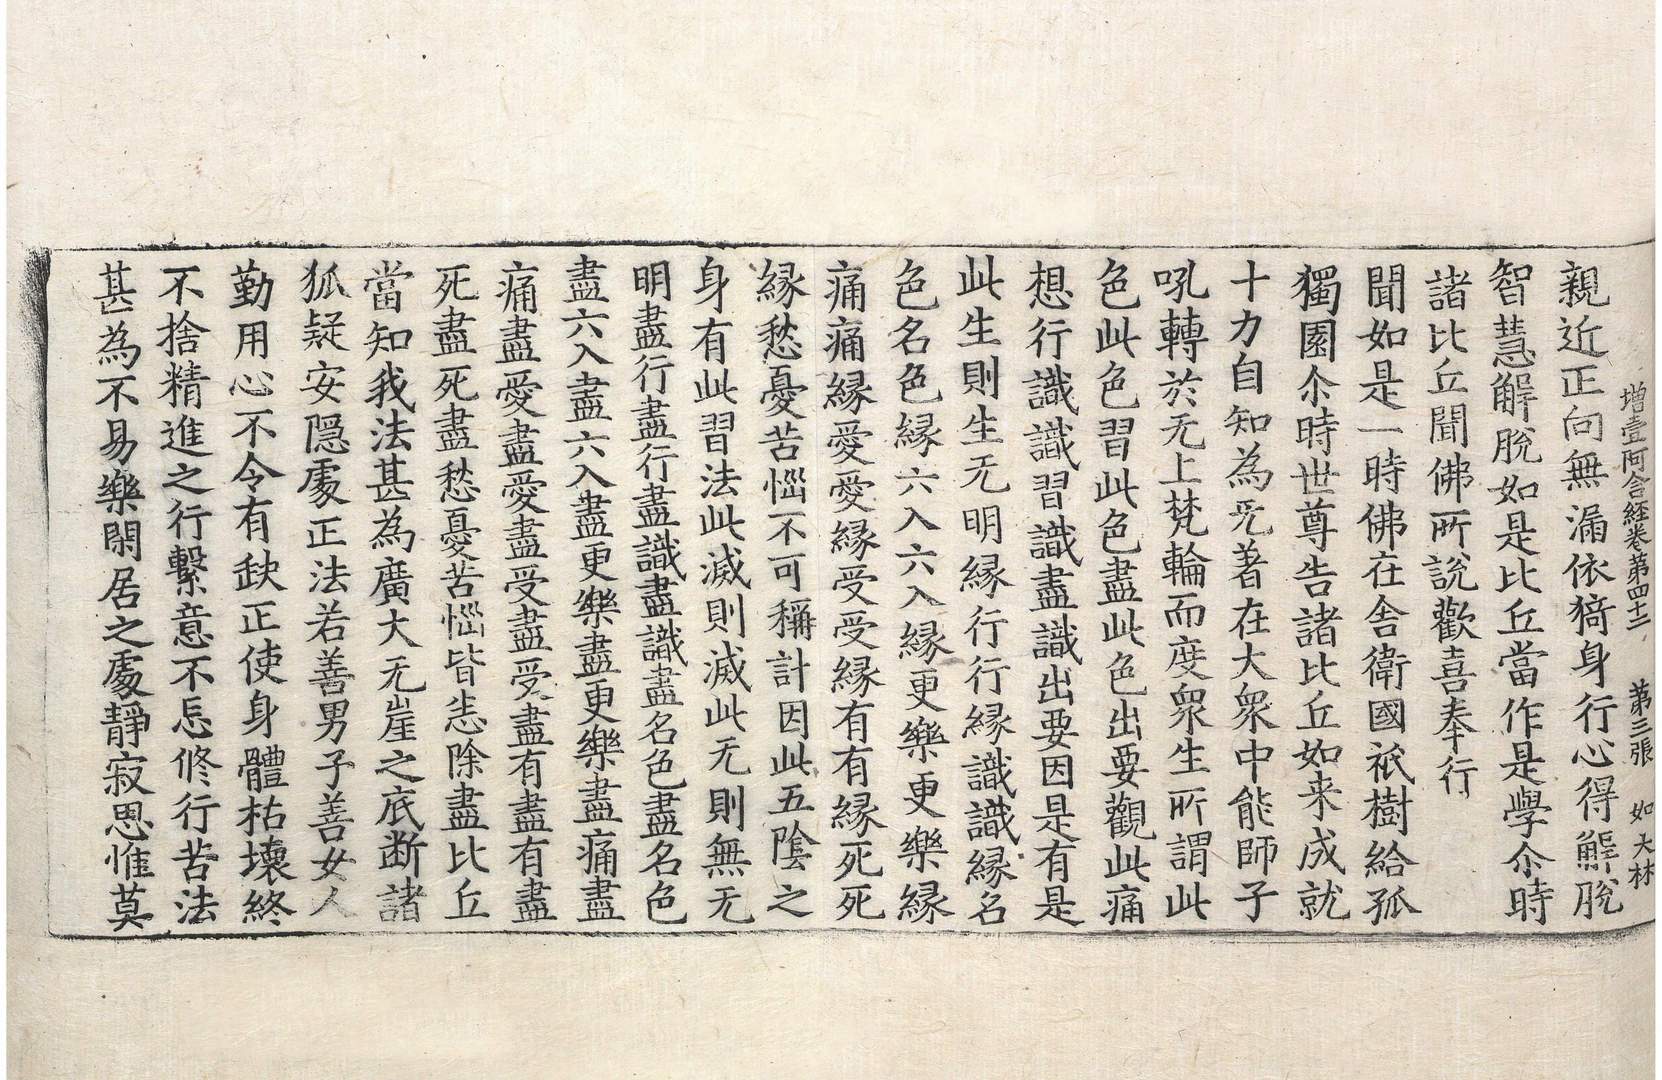 增壹阿含経卷第四十二 第三張 如 大林
親近正向無漏依猗身行心得解脫
智慧解脫如是比丘當作是學尒時
諸比丘聞佛所說歡喜奉行
聞如是一時佛在舎衛國祇樹給孤
獨園尒時世尊告諸比丘如来成就
十力自知為无著在大衆中能師子
吼轉於无上梵輪而度衆生所謂此
色此色習此色盡此色出要觀此痛
想行識識習識盡識出要因是有是
此生則生无明縁行行縁識識縁名
色名色縁六入六入縁更樂更樂縁
痛痛縁愛愛縁受受縁有有縁死死
縁愁憂苦惱不可稱計因此五隂之
身有此習法此滅則滅此无則無无
明盡行盡行盡識盡識盡名色盡名色
盡六入盡六入盡更樂盡更樂盡痛盡
痛盡愛盡愛盡受盡受盡有盡有盡
死盡死盡愁憂苦惱皆悉除盡比丘
當知我法甚為廣大无崖之底断諸
狐疑安隱處正法若善男子善女人
勤用心不令有缺正使身體枯壊終
不捨精進之行繫意不忘修行苦法
甚為不易樂閑居之處靜寂思惟莫